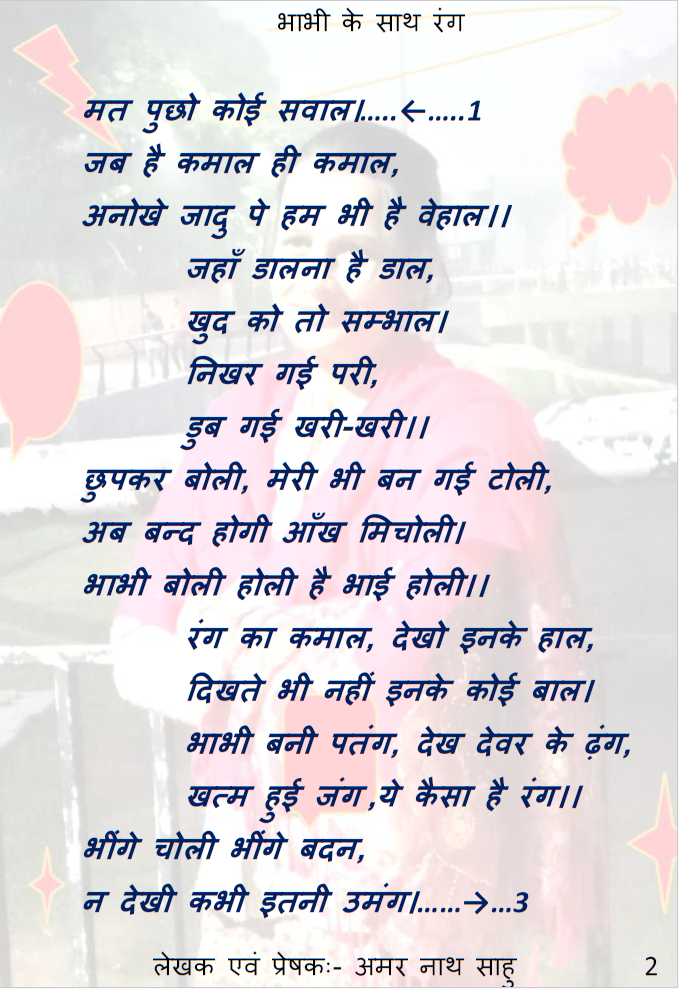 भाभी के साथ रंग
मत पुछो कोई सवाल।.....←.....1
जब है कमाल ही कमाल,
अनोखे जादु पे हम भी है वेहाल।।
जहाँ डालना है डाल,
खुद को तो सम्भाल।
निखर गई परी,
डुब गई खरी-खरी।।
छुपकर बोली, मेरी भी बन गई टोली,
अब बन्द होगी आँख मिचोली।
भाभी बोली होली है भाई होली।।
रंग का कमाल, देखो इनके हाल,
दिखते भी नहीं इनके कोई बाल।
भाभी बनी पतंग, देख देवर के ढ़ंग,
खत्म हुई जंग ,ये कैसा है रंग।।
भींगे चोली भींगे बदन,
न देखी कभी इतनी उमंग।......→...3
लेखक एवं प्रेषकः- अमर नाथ साहु 2